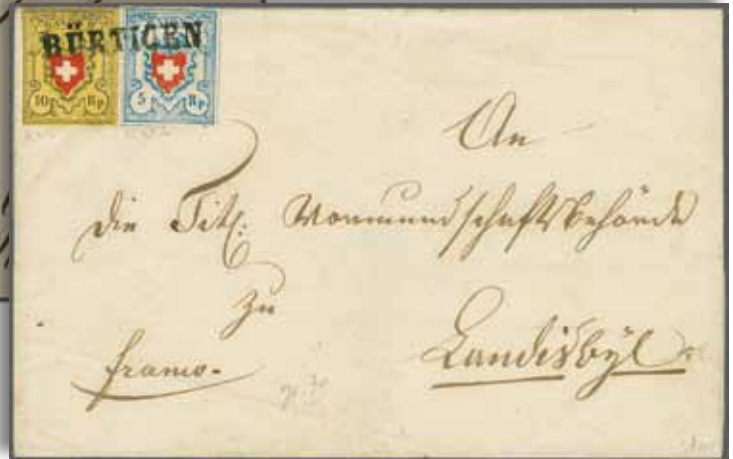 BÜRTIGEN
10 Rp. 5 Rp.
An
die Tit: Vormundschaftsbehörde
zu
franco. Landisbÿl